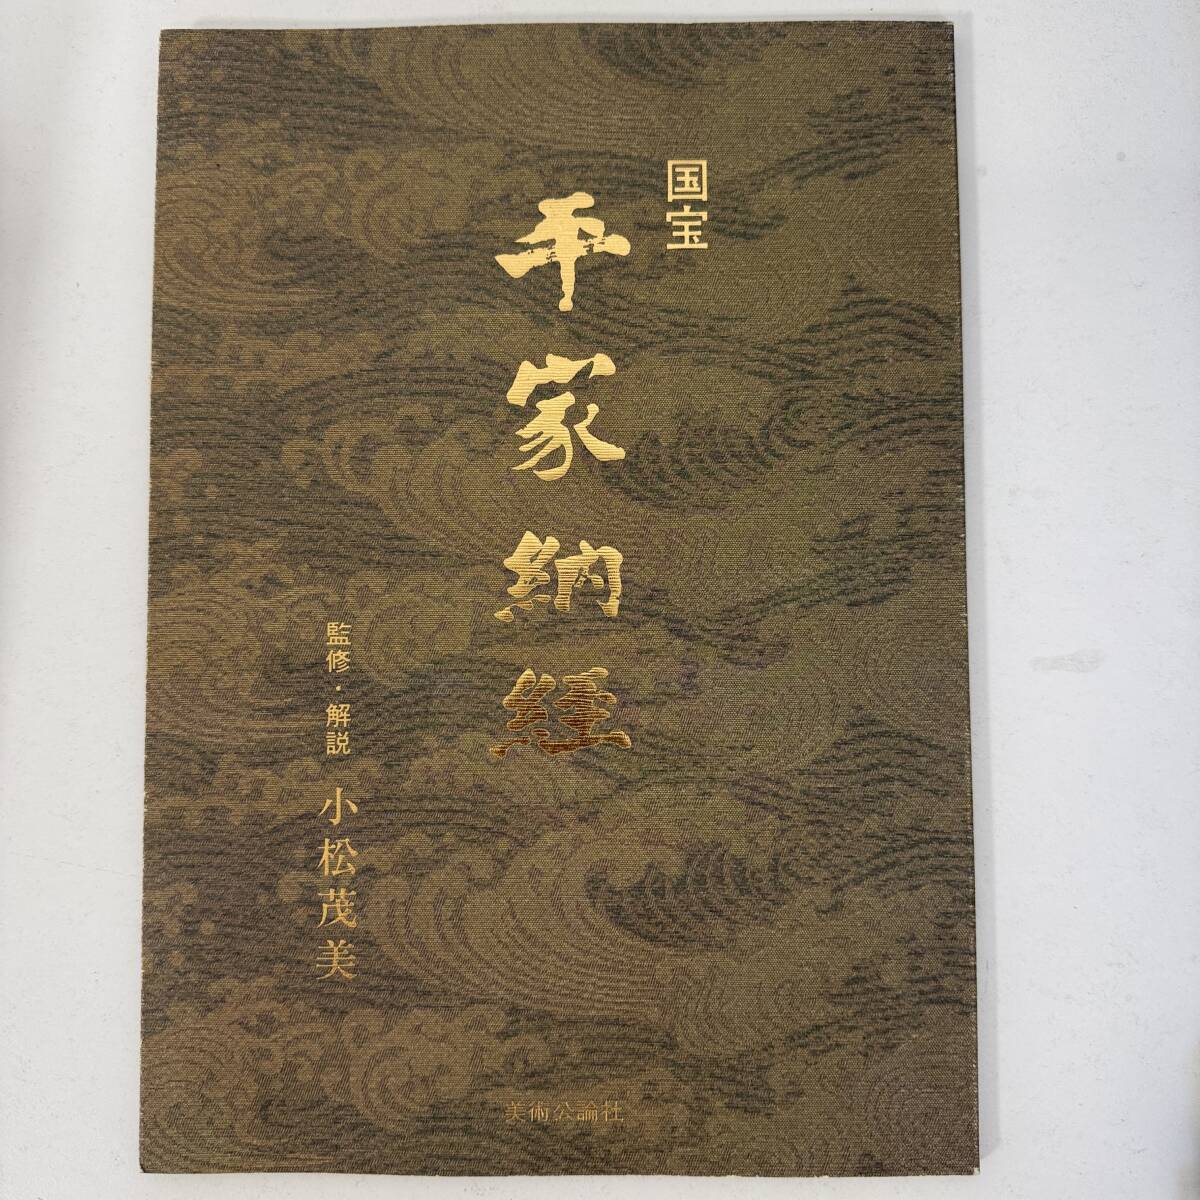 国宝
平家納経
監修・解説 小松茂美
美術公論社